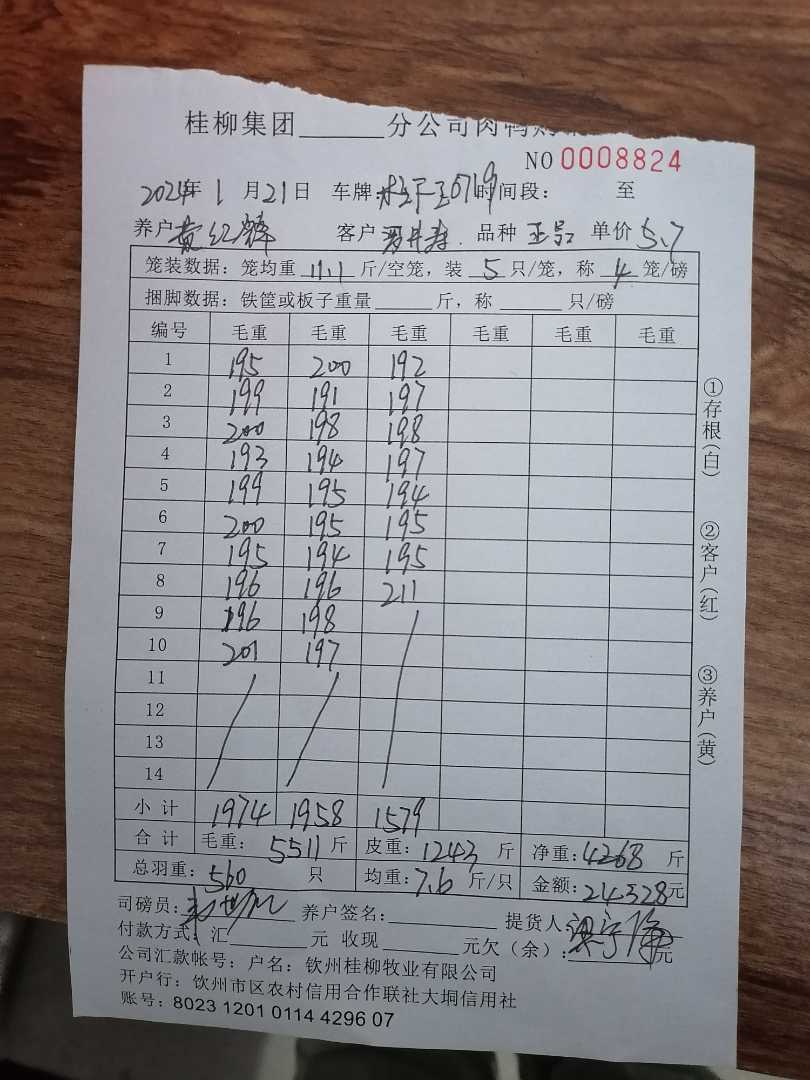 桂柳集团______分公司肉鸭购
NO 0008824
2024年 1 月 21 日 车牌: 0719 时间段: 至
养户 黄红 客户 品种 正品 单价 5.7
笼装数据: 笼均重 11.1 斤/空笼, 装 5 只/笼, 称 4 笼/磅
捆脚数据: 铁筐或板子重量______斤, 称______只/磅
编号 毛重 毛重 毛重 毛重 毛重 毛重
1 195 200 192
2 199 191 197
3 200 198 198
4 193 194 197
5 199 195 194
6 200 195 195
7 195 194 195
8 196 196 211
9 196 198
10 201 197
11
12
13
14
小计 1974 1958 1579
合计 毛重: 5511 斤 皮重: 1243 斤 净重: 4268 斤
总羽重: 560 只 均重: 7.6 斤/只 金额: 24328 元
司磅员: 养户签名:______ 提货人:
付款方式: 汇______元 收现______元欠(余):______元
公司汇款帐号: 户名: 钦州桂柳牧业有限公司
开户行: 钦州市区农村信用合作联社大垌信用社
账号: 8023 1201 0114 4296 07
①存根(白)
②客户(红)
③养户(黄)